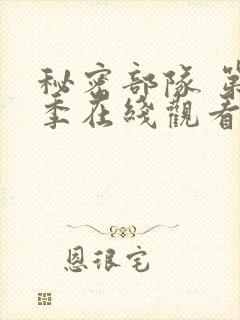 秘密部隊 第
季在綫觀看
恩很宅